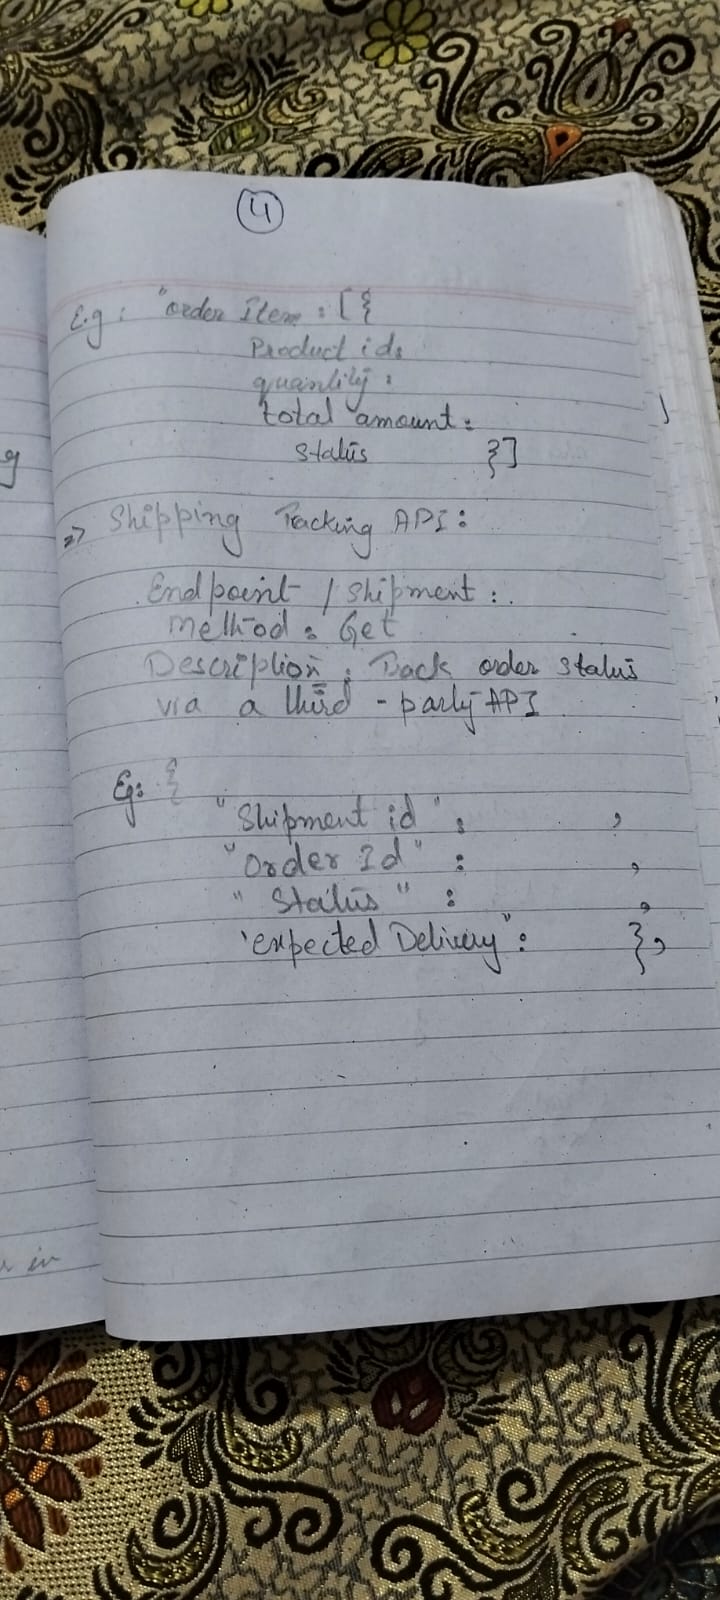 4
E.g : "order Item : [ {
Product id:
quantity :
total amount :
status }]
=> Shipping Tracking API :
Endpoint / Shipment :.
Method : Get
Description : Track order status
via a third - party API
Eg: {
"Shipment id" : ,
"Order Id" : ,
"Status" : ,
'expected Delivery" : },
in